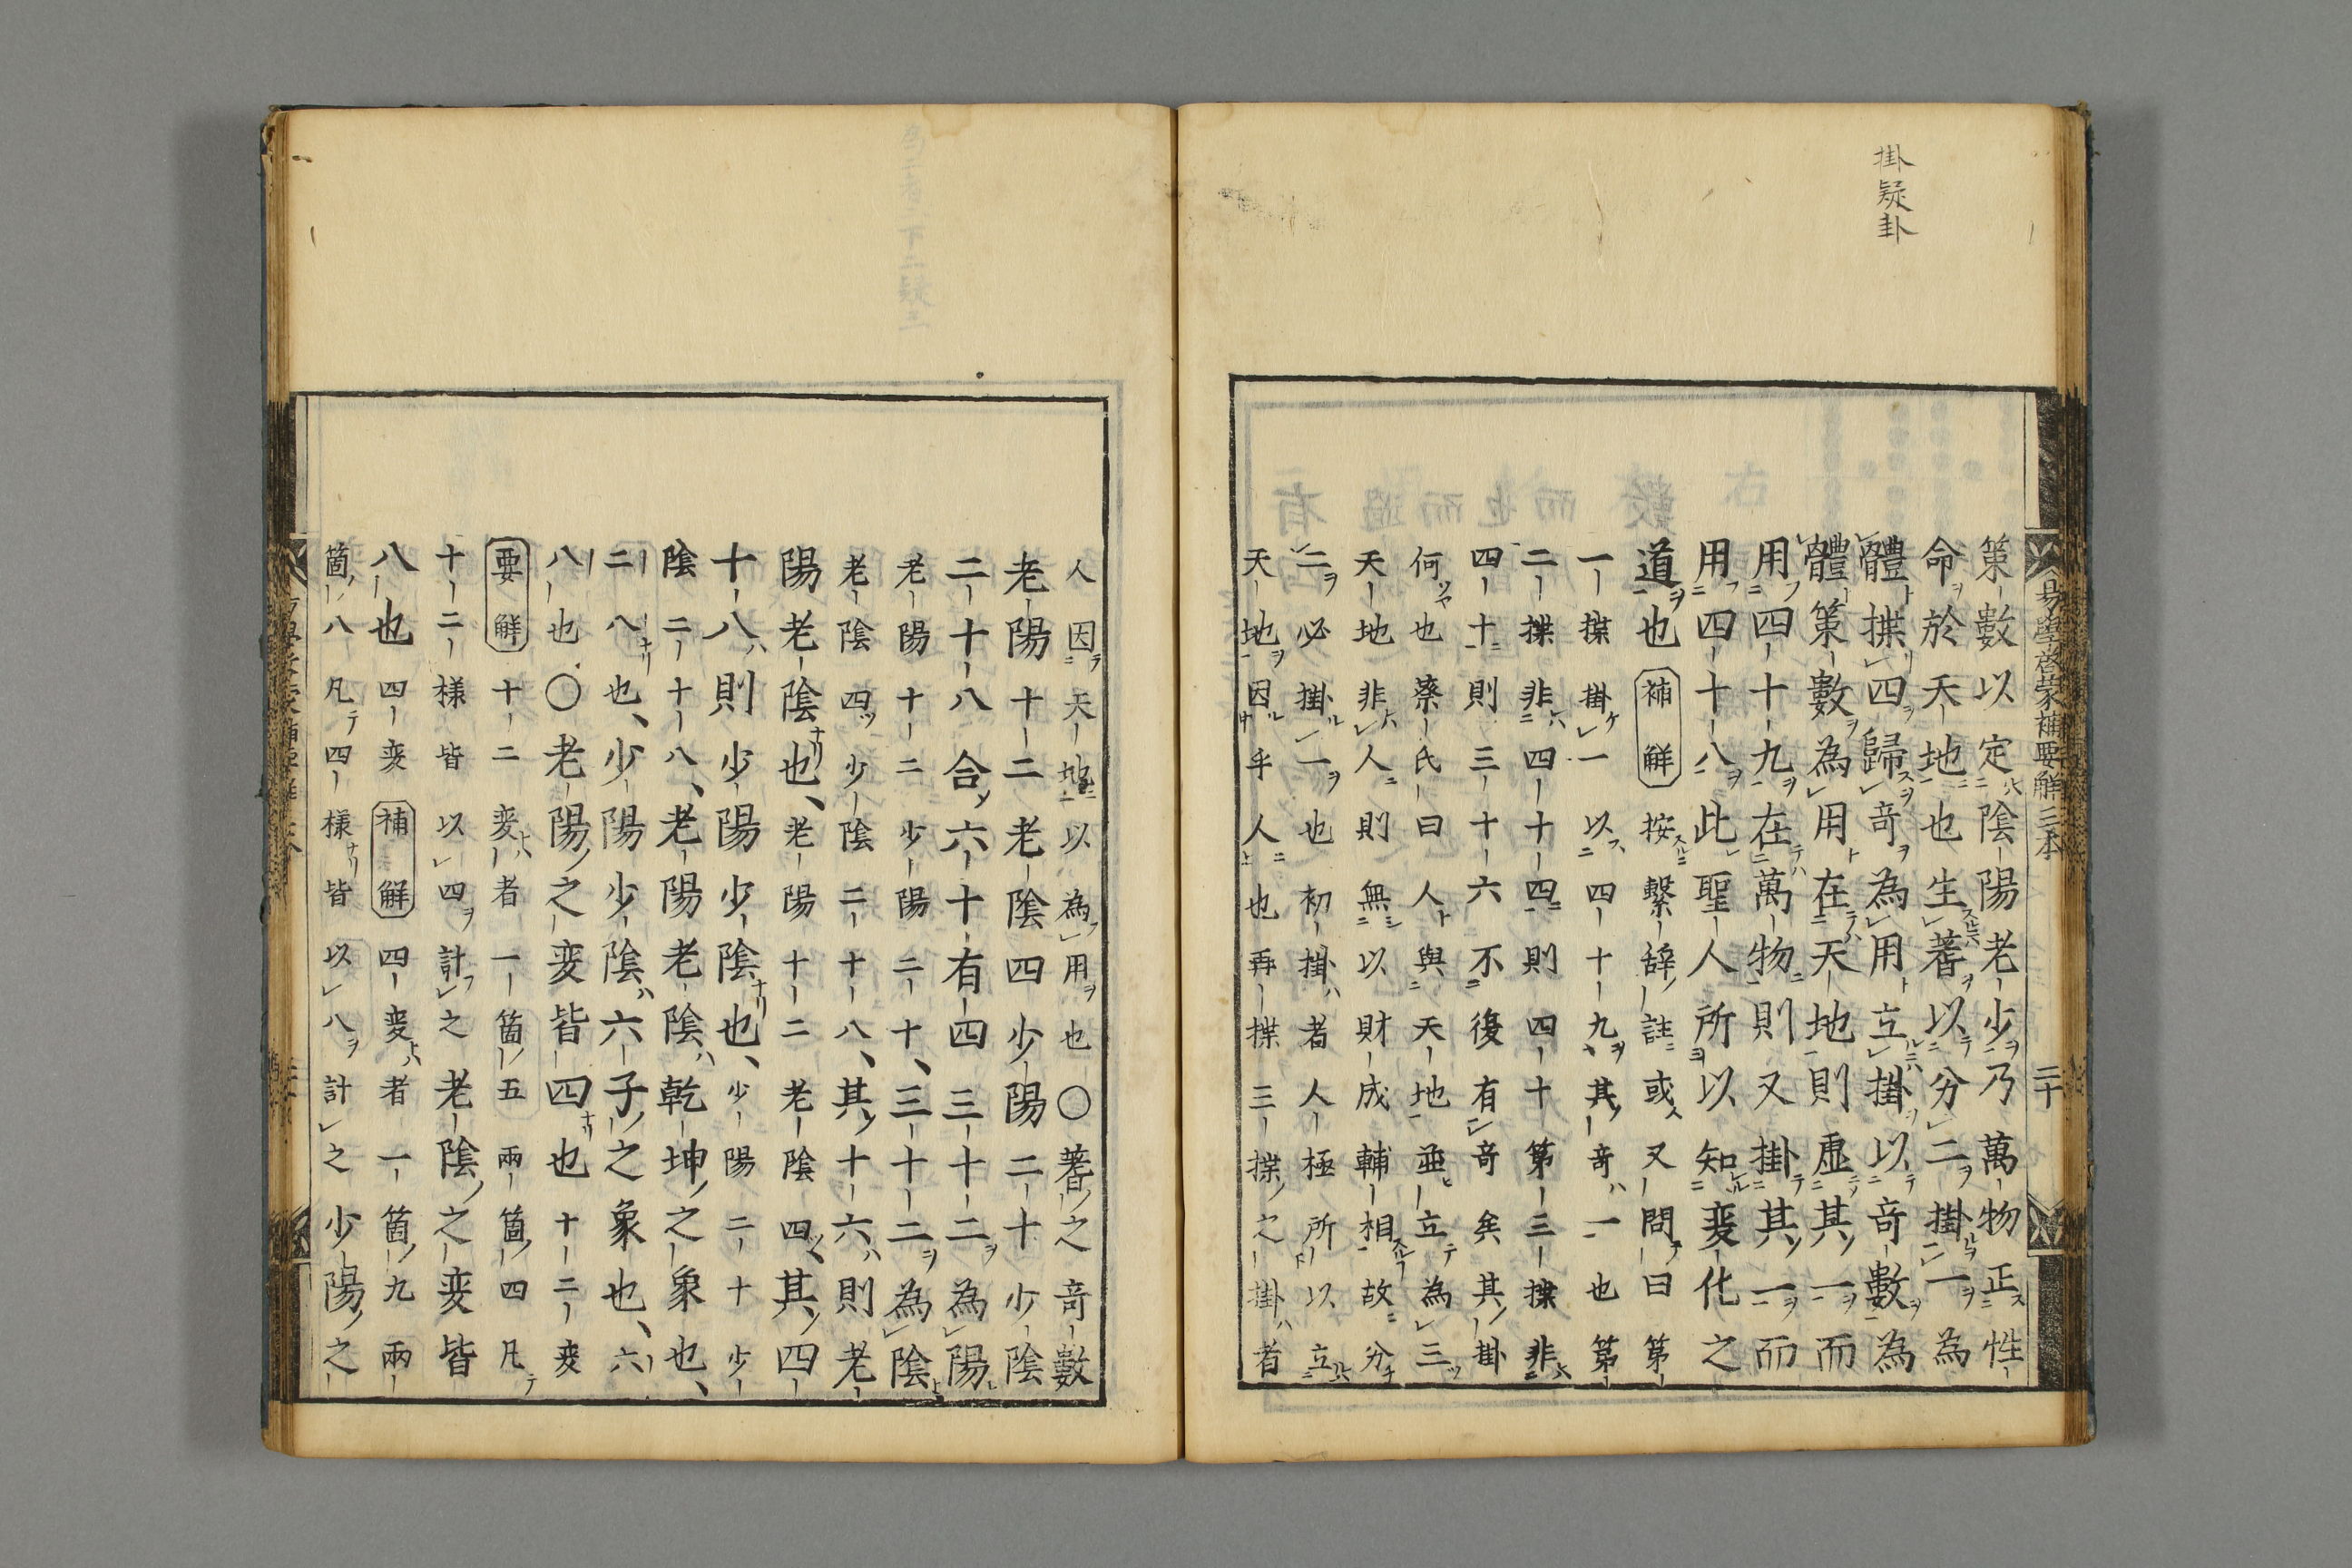 掛疑卦
易學啓蒙補要解三本 二十
策數以定陰陽老少乃萬物正性
命於天地也生蓍以分二掛一為
體揲四歸奇為用立掛以奇數為
體策數為用在天地則虛其一而
用四十九在萬物則又掛其一而
用四十八此聖人所以知変化之
道也補解按繫辞註或又問曰第
一揲掛一以四十九其奇一也第
二揲非四十四則四十第三揲非
四十則三十六不復有奇矣其掛
何也蔡氏曰人與天地並立為三
天地非人則無以財成輔相故分
二必掛一也初掛者人極所以立
天地因乎人也再揲三揲之掛者
人因天地以為用也〇蓍之奇數
老陽十二老陰四少陽二十少陰
二十八合六十有四三十二為陽
老陽十二少陽二十、三十二為陰
老陰四少陰二十八、其十六則老
陽老陰也、老陽十二老陰四、其四
十八則少陽少陰也、少陽二十少
陰二十八、老陽老陰乾坤之象也、
二八也、少陽少陰六子之象也、六
八也〇老陽之変皆四也十二変
要解十二変者一箇五兩箇四凡
十二様皆以四計之老陰之変皆
八也四変補解四変者一箇九兩
箇八凡四様皆以八計之少陽之